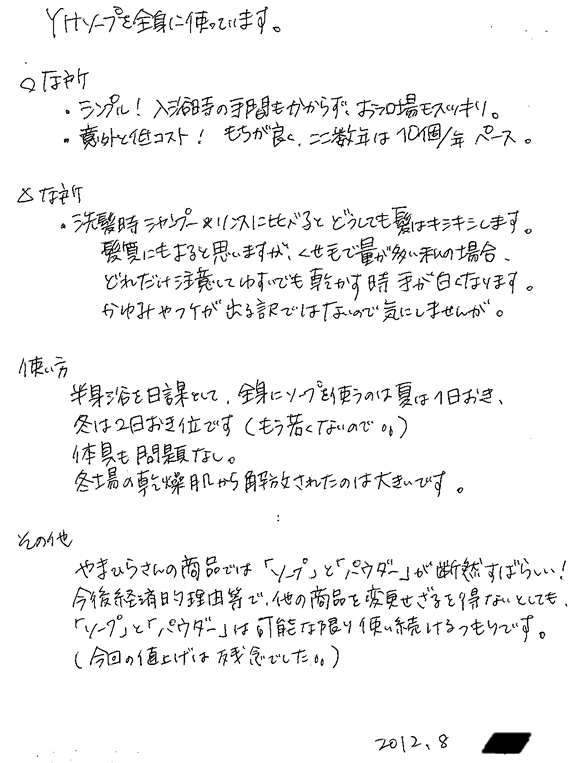 YHソープを全身に使っています。
○な所
・シンプル！入浴時の手間もかからず、お風呂場もスッキリ。
・意外と低コスト！もちが良く、ここ数年は10個/年ペース。
△な所
・洗髪時シャンプー&リンスに比べるとどうしても髪はキシキシします。
髪質にもよると思いますが、くせ毛で量が多い私の場合、
どれだけ注意してゆすいでも乾かす時手が白くなります。
かゆみやフケが出る訳ではないので気にしませんが。
使い方
半身浴を日課として、全身にソープを使うのは夏は1日おき、
冬は2日おき位です(もう若くないので。。)
体臭も問題なし。
冬場の乾燥肌から解放されたのは大きいです。
:
その他
やまひらさんの商品では「ソープ」と「パウダー」が断然すばらしい！
今後経済的理由等で、他の商品を変更せざるを得ないとしても、
「ソープ」と「パウダー」は可能な限り使い続けるつもりです。
(今回の値上げは残念でした。。)
2012.8